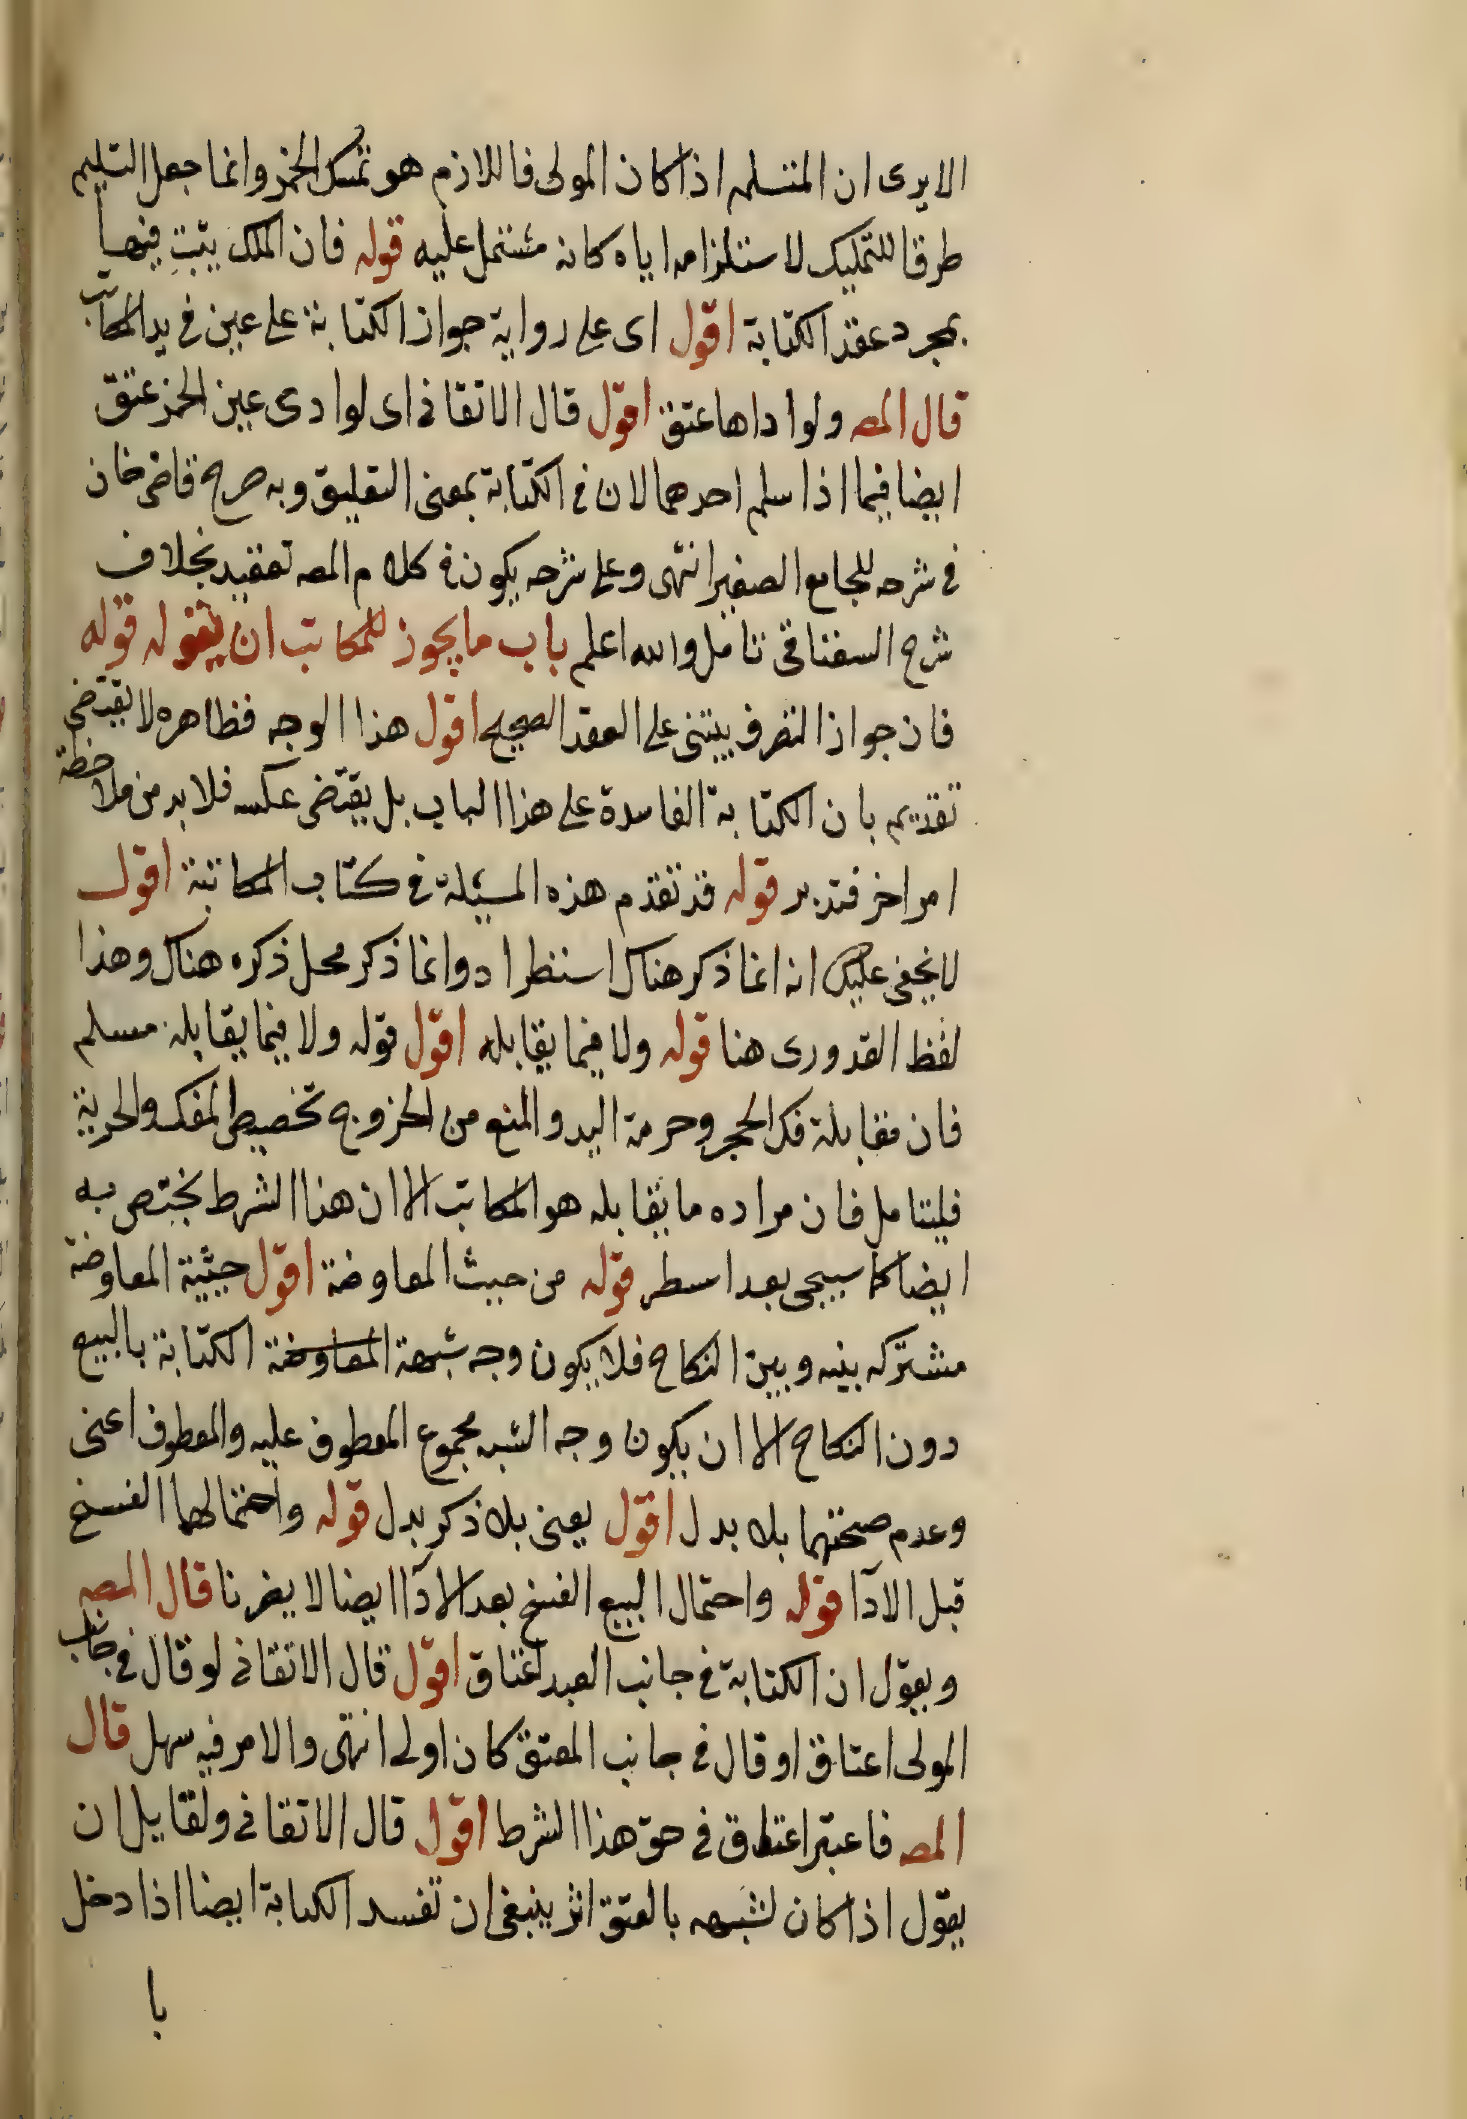 الا يرى ان المتسلم اذا كان المولى فاللازم هو تمسك الخمر وانما جعل التسليم
طرقا للتمليك لاستلزامه اياه كانه مشتمل عليه قوله فان الملك يثبت فيها
بمجرد عقد الكتابة اقول اى على رواية جواز الكتابة على عين فى يد المكاتب
قال المص ولو اداها عتق اقول قال الاتقانى اى لو ادى عين الخمر عتق
ايضا فيما اذا سلم احدهما لان فى الكتابة بمعنى التعليق وبه صرح قاضى خان
فى شرحه للجامع الصغير انتهى وعلى شرحه يكون فى كلام المص تعقيد بخلاف
شرح السغناقى تامل والله اعلم باب ما يجوز للمكاتب ان يفعله قوله
فان جواز التصرف يبتنى على العقد الصحيح اقول هذا الوجه فظاهره لا يقتضى
تقديم بان الكتابة الفاسدة على هذا الباب بل يقتضى عكسه فلا بد من ملاحظة
امر اخر فتدبر قوله قد تقدم هذه المسئلة فى كتاب المكاتبة اقول
لا يخفى عليك انه انما ذكر هناك استطرادا وانما ذكر محل ذكره هناك وهذا
لفظ القدورى هنا قوله ولا فيما يقابله اقول قوله ولا فيما يقابله مسلم
فان مقابلة فك الحجر وحرمة اليد والمنع من الخروج تخصيص للفك والحرية
فليتامل فان مراده ما يقابله هو المكاتب الا ان هذا الشرط يختص به
ايضا كما سيجى بعد اسطر قوله من حيث المعاوضة اقول حيثية المعاوضة
مشتركه بينه وبين النكاح فلا يكون وجه شبهة المعاوضة الكتابة بالبيع
دون النكاح الا ان يكون وجه الشبه مجموع المعطوف عليه والمعطوف اعنى
وعدم صحتهما بلا بدل اقول يعنى بلا ذكر بدل قوله واحتمالهما الفسخ
قبل الادآ قوله واحتمال البيع الفسخ بعد الادآ ايضا لا يضرنا قال المص
وبقول ان الكتابة فى جانب العبد اعتاق اقول قال الاتقانى لو قال فى جانب
المولى اعتاق او قال فى جانب المعتق كان اولى انتهى والامر فيه سهل قال
المص فاعتبر اعتاق فى حق هذا الشرط اقول قال الاتقانى ولقايل ان
يقول اذا كان لشبهه بالعتق اثر ينبغى ان تفسد الكتابة ايضا اذا دخل
با